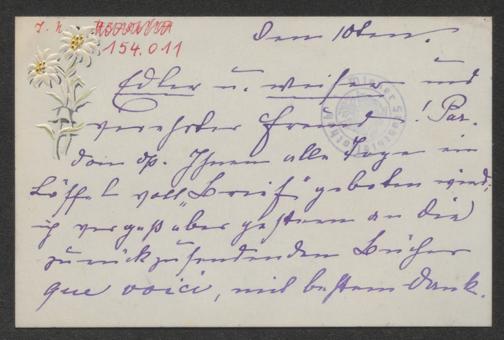 J. N.
154.011
Den 10ten.
Edler u. weiser und
verehrter Freund! Par-
don, dß. Ihnen alle Tage ein
Löffel voll „Brief" geboten wird,
ich vergaß aber gestern an die
zurückzusendenden Bücher
que voici, mit bestem Dank.